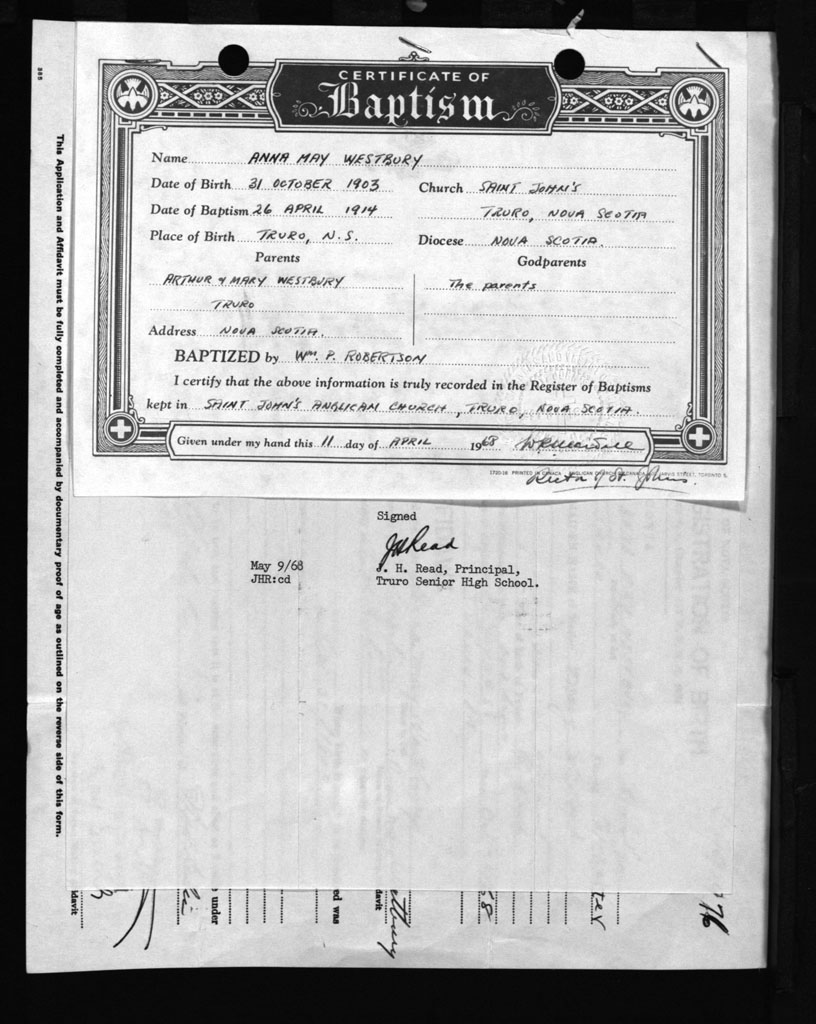 CERTIFICATE OF
Baptism
Name ANNA MAY WESTBURY
Date of Birth 31 OCTOBER 1903 Church SAINT JOHN'S
Date of Baptism 26 APRIL 1914 TRURO, NOVA SCOTIA
Place of Birth TRURO, N.S. Diocese NOVA SCOTIA.
Parents Godparents
ARTHUR & MARY WESTBURY The parents
TRURO
Address NOVA SCOTIA.
BAPTIZED by Wm. P. ROBERTSON
I certify that the above information is truly recorded in the Register of Baptisms
kept in SAINT JOHN'S ANGLICAN CHURCH, TRURO, NOVA SCOTIA.
Given under my hand this 11 day of APRIL 1968
Rector of St. Johns.
Signed
JHRead
May 9/68 J. H. Read, Principal,
JHR:cd Truro Senior High School.
This Application and Affidavit must be fully completed and accompanied by documentary proof of age as outlined on the reverse side of this form.
davit
under
ed was
davit
58
76